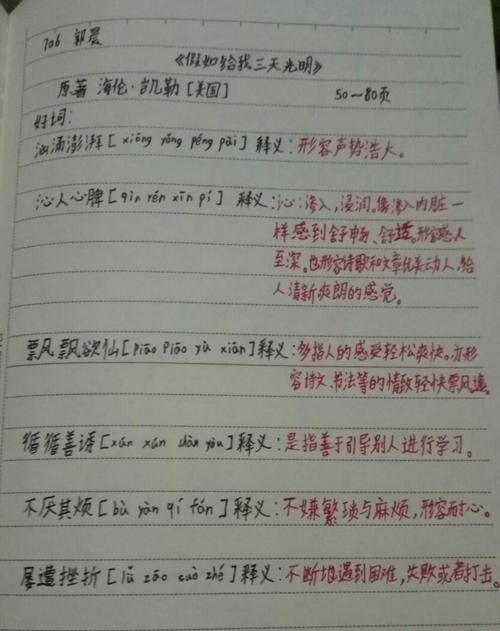 706 郭晨
《假如给我三天光明》
原著 海伦·凯勒[美国] 50—80页
好词:
汹涌澎湃[xiōng yǒng péng pài]释义:形容声势浩大。
沁人心脾[qìn rén xīn pí]释义:沁:渗入,浸润。像渗入内脏一
样感到舒申畅、舒适。形容感人
至深。也形容诗歌和文章优美动人,给
人清新爽朗的感觉。
飘风飘欲仙[piāo piāo yù xiān]释义:多指人的感受轻松爽快。亦形
容诗文、书法等的情致轻快飘风逸。
循循善诱[xún xún shàn yòu]释义:是指善于引导别人进行学习。
不厌其烦[bù yàn qí fán]释义:不嫌繁琐与麻烦,形容耐心。
屡遭挫折[lǚ zāo cuò zhé]释义:不断地遇到困难,失败或者打击。